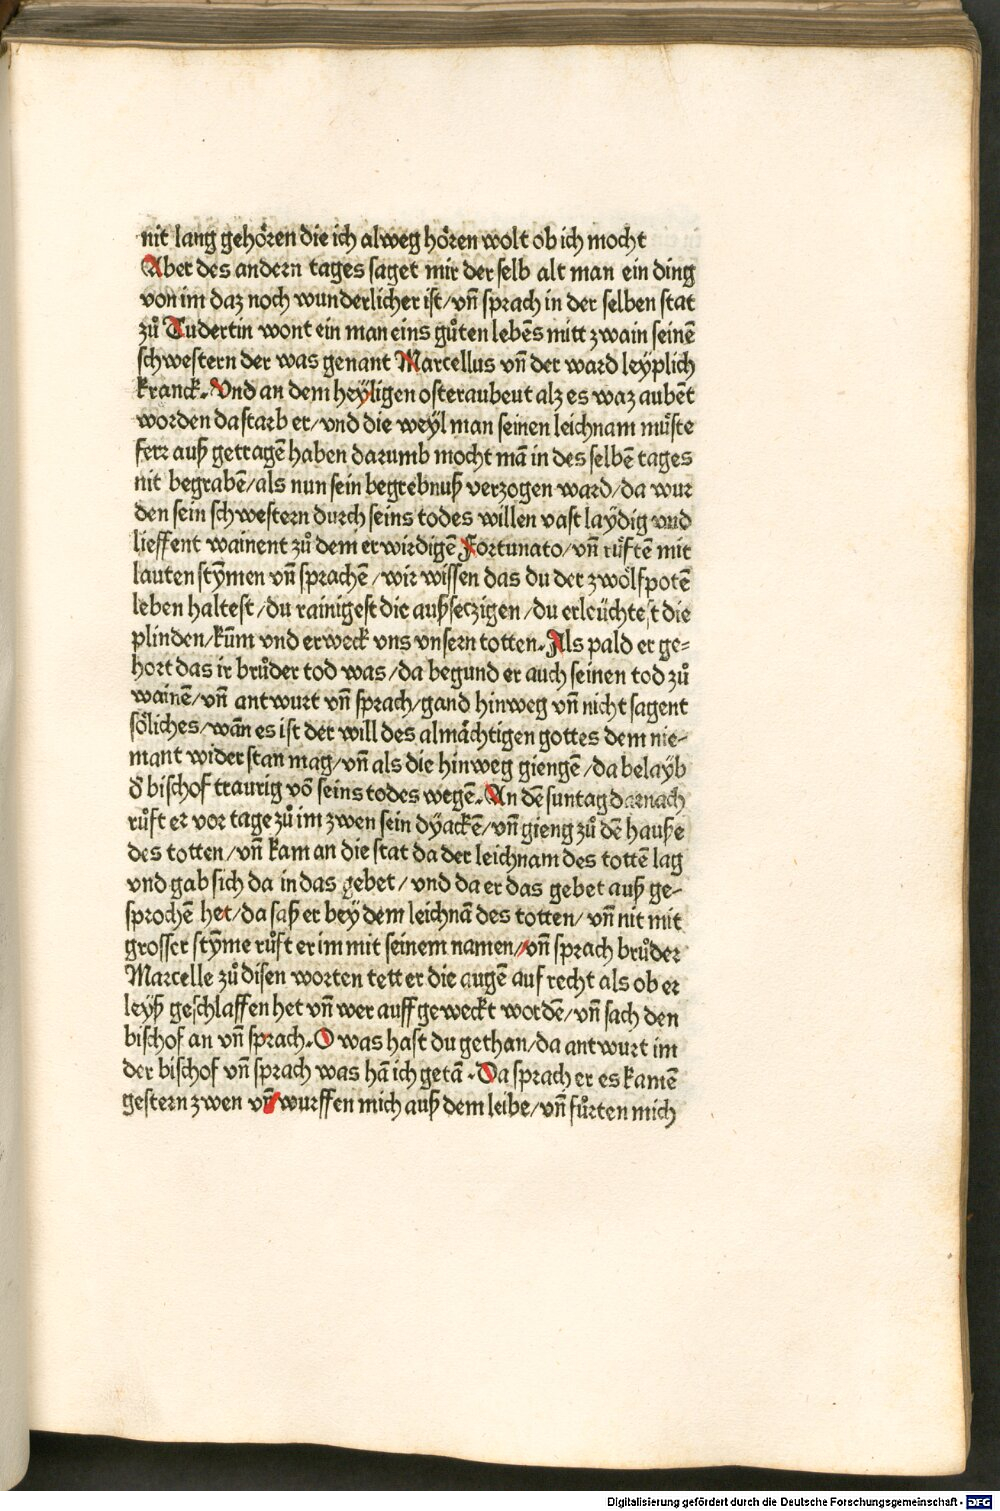 nit lang gehören die ich alweg hören wolt ob ich mocht
Aber des andern tages saget mir der selb alt man ein ding
von im daz noch wunderlicher ist/vñ sprach in der selben stat
zů Tudertin wont ein man eins gůten lebẽs mitt zwain seinẽ
schwestern der was genant Marcellus vñ der ward leyplich
kranck. Vnd an dem heyligen osteraubent alz es waz aubẽt
worden da starb er/vnd die weyl man seinen leichnam můste
ferr auß getragẽ haben darumb mocht mã in des selbẽ tages
nit begrabẽ/als nun sein begrebnuß verzogen ward/da wur
den sein schwestern durch seins todes willen vast laydig vnd
lieffent wainent zů dem erwirdigẽ Fortunato/vñ růftẽ mit
lauten stym̃en vñ sprachẽ/wir wissen das du der zwölfpotẽ
leben haltest/du rainigest die außseczigen/du erleüchtest die
plinden/kum̃ vnd erweck vns vnsern totten. Als pald er ge⸗
hort das ir brůder tod was/da begund er auch seinen tod zů
wainẽ/vñ antwurt vñ sprach/gand hinweg vñ nicht sagent
söliches/wãn es ist der will des almächtigen gottes dem nie⸗
mant widerstan mag/vñ als die hinweg giengẽ/da belayb
d̕ bischof traurig võ seins todes wegẽ. An dẽ suntag darnach
růft er vor tage zů im zwen sein dyackẽ/vñ gieng zů dẽ hauße
des totten/vñ kam an die stat da der leichnam des tottẽ lag
vnd gab sich da in das gebet/vnd da er das gebet auß ge⸗
sprochẽ het/da saß er bey dem leichnã des totten/vñ nit mit
grosser stym̃e růft er im mit seinem namen/vñ sprach brůder
Marcelle zů disen worten tett er die augẽ auf recht als ob er
leyß geschlaffen het vñ wer auffgeweckt wordẽ/vñ sach den
bischof an vñ sprach. O was hast du gethan/da antwurt im
der bischof vñ sprach was hã ich getã. Da sprach er es kamẽ
gestern zwen vñ wurffen mich auß dem leibe/vñ fůrten mich
Digitalisierung gefördert durch die Deutsche Forschungsgemeinschaft - DFG